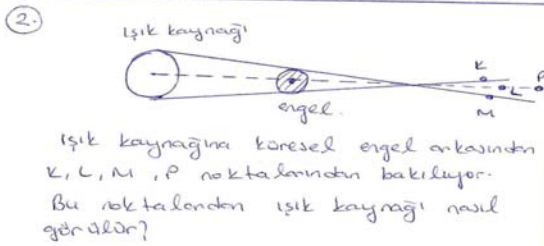 2.
ışık kaynağı
K
L
P
M
engel.
ışık kaynağına küresel engel arkasından
K, L, M, P noktalarından bakılıyor.
Bu noktalardan ışık kaynağı nasıl
görülür?